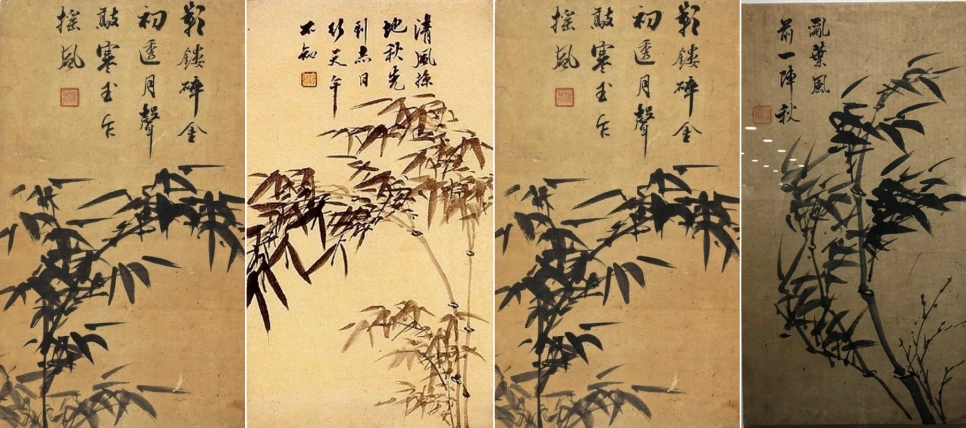 影鏤碎金
初透月聲
敲寒玉乍
搖風
清風掠
地秋先
到赤日
行天午
不知
影鏤碎金
初透月聲
敲寒玉乍
搖風
亂葉風
前一陣秋